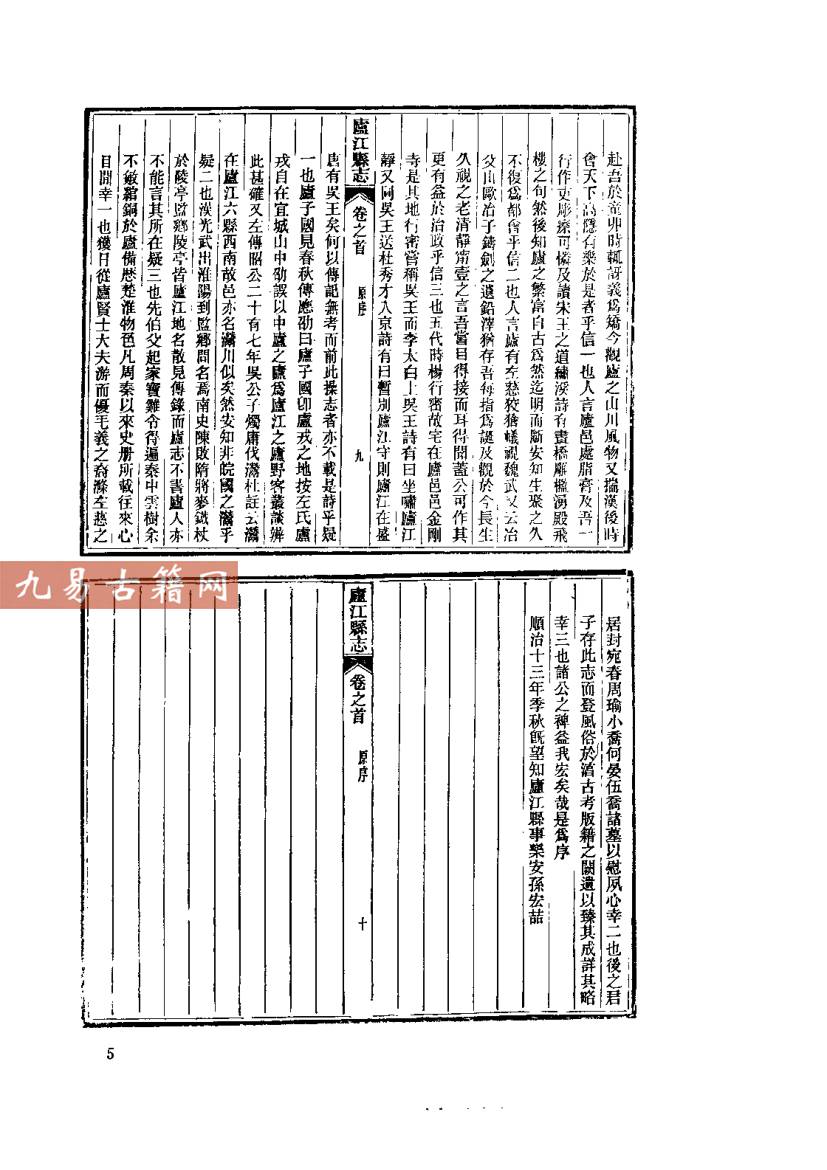 赴吾於童丱時輒訝義爲矯今觀廬之山川風物又揣漢後時
會天下高隱有樂於是者乎信一也人言廬邑處脂膏及吾一
行作吏彫瘵可憐及讀宋王之道繡溪詩有畫橋雕檻湧殿飛
樓之句然後知廬之繁富自古爲然迄明而斷安知生聚之久
不復爲都會乎信二也人言廬有左慈狡獪蟻視魏武又云冶
父山歐冶子鑄劍之遺鉛滓猶存吾每指爲誕及觀於今長生
久視之老清靜甯壹之言吾嘗目得接而耳得聞蓋公可作其
更有益於治政乎信三也五代時楊行密故宅在廬邑邑金剛
寺是其地行密嘗稱吳王而李太白上吳王詩有曰坐嘯廬江
靜又同吳王送杜秀才入京詩有曰暫別廬江守則廬江在盛
廬江縣志
卷之首
原序
九
唐有吳王矣何以傳記無考而前此操志者亦不載是詩乎疑
一也廬子國見春秋傳應劭曰廬子國卽廬戎之地按左氏廬
戎自在宜城山中劭誤以中廬之廬爲廬江之廬野客叢談辨
此甚確又左傳昭公二十有七年吳公子燭庸伐灊杜註云灊
在廬江六縣西南故邑亦名灊川似矣然安知非皖國之灊乎
疑二也漢光武出淮陽到監鄉問名焉南史陳敗隋將麥鐵杖
於陵亭監鄉陵亭皆廬江地名散見傳錄而廬志不書廬人亦
不能言其所在疑三也先伯父起家寶雞令得遍秦中雲樹余
不敏綰銅於廬備歷楚淮物色凡周秦以來史册所載往來心
目間幸一也獲日從廬賢士大夫游而優毛義之裔滌左慈之
居封宛春周瑜小喬何晏伍喬諸墓以慰夙心幸二也後之君
子存此志而登風俗於淳古考版籍之闕遺以臻其成詳其略
幸三也諸公之裨益我宏矣哉是爲序
順治十三年季秋旣望知廬江縣事樂安孫宏喆
廬江縣志
卷之首
原序
十
九易古籍网
5